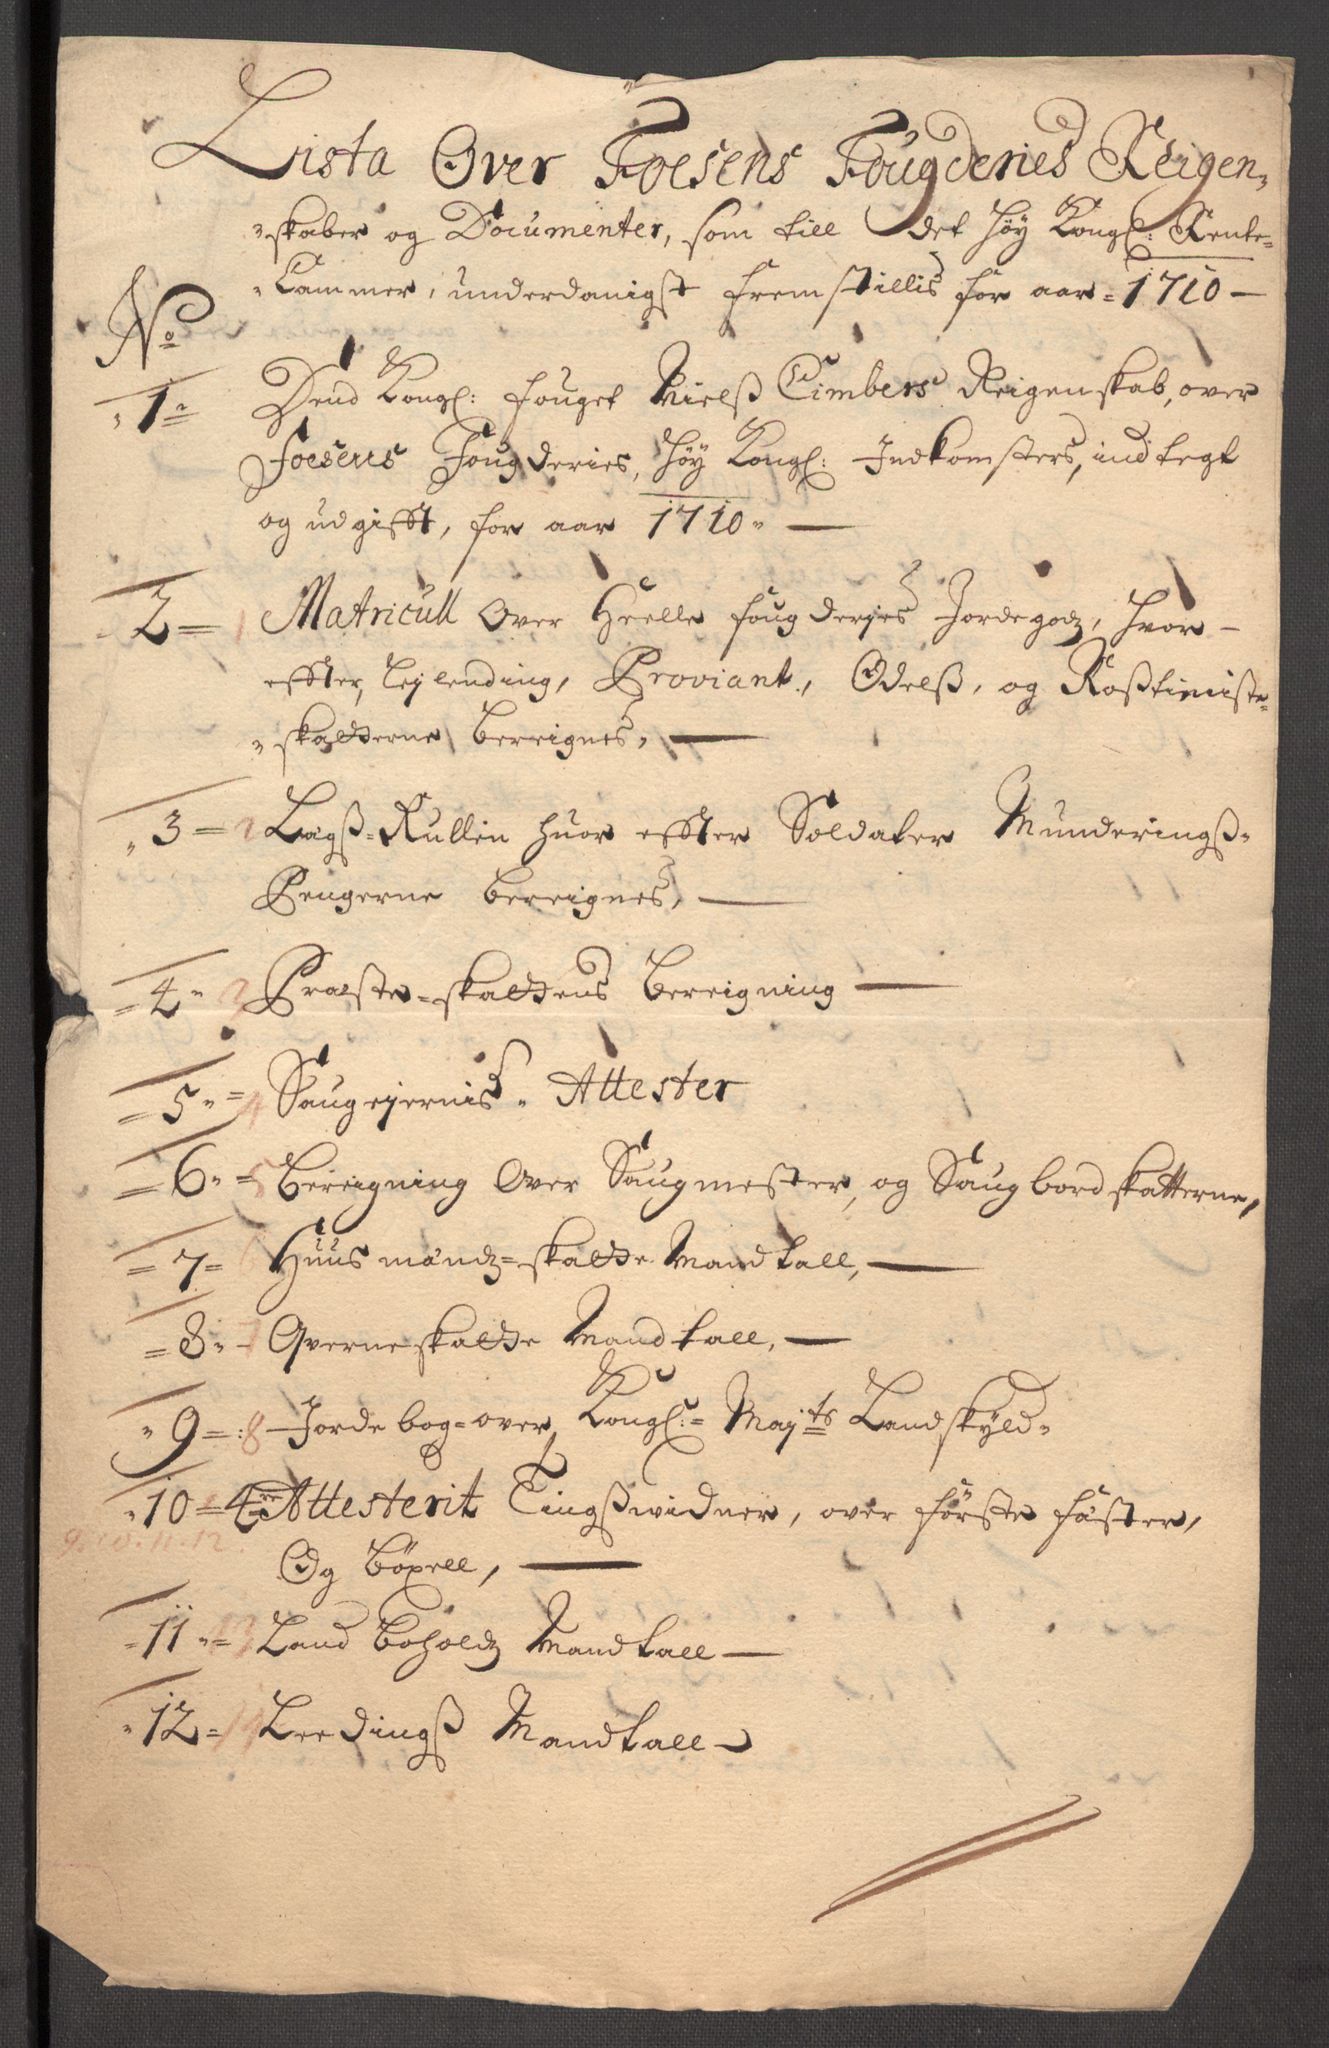 Lista Over Foesens Fougderies Reigen-
-skaber og Documenter, som till det Høy Kongl: Rente-
-Cammer, underdanigst fremstillis for aar = 1710 —
No
1 Dend Kongl: fouget Nielß Cimbers Reigenskab, over
Foesens Fougderies, Høy Kongl: Indkomsters, indtegt
og udgifft, for aar 1710. —
2 = 1 Matricull over Heelle fougderies Jordegodz, hvor-
effter, Leylending, Proviant, Odelß, og Roßtieniste-
-skatterne berreignes, —
3 = 2 Lægß-Rullen huor effter Soldater Munderingß-
Pengerne berreignes, —
4 = 3 Præste-skattens berreigning —
5 = 4 Saugeyernis Attester
6 = 5 berreigning over Saugmester, og Saugbordskatterne,
7 = 6 Huusmændz-skatte Mandtall, —
8 = 7 Qverneskatte Mandtall, —
9 = 8 Jordebog over, Kongl: Maj:ts Landskyld
10 = 4re Attesterit Tingßwidner, over førster fæster,
9. 10. 11. 12.
Og böxell, —
11 = 13 Land boholdz Mandtall —
12 = 14 Leedingß Mandtall —